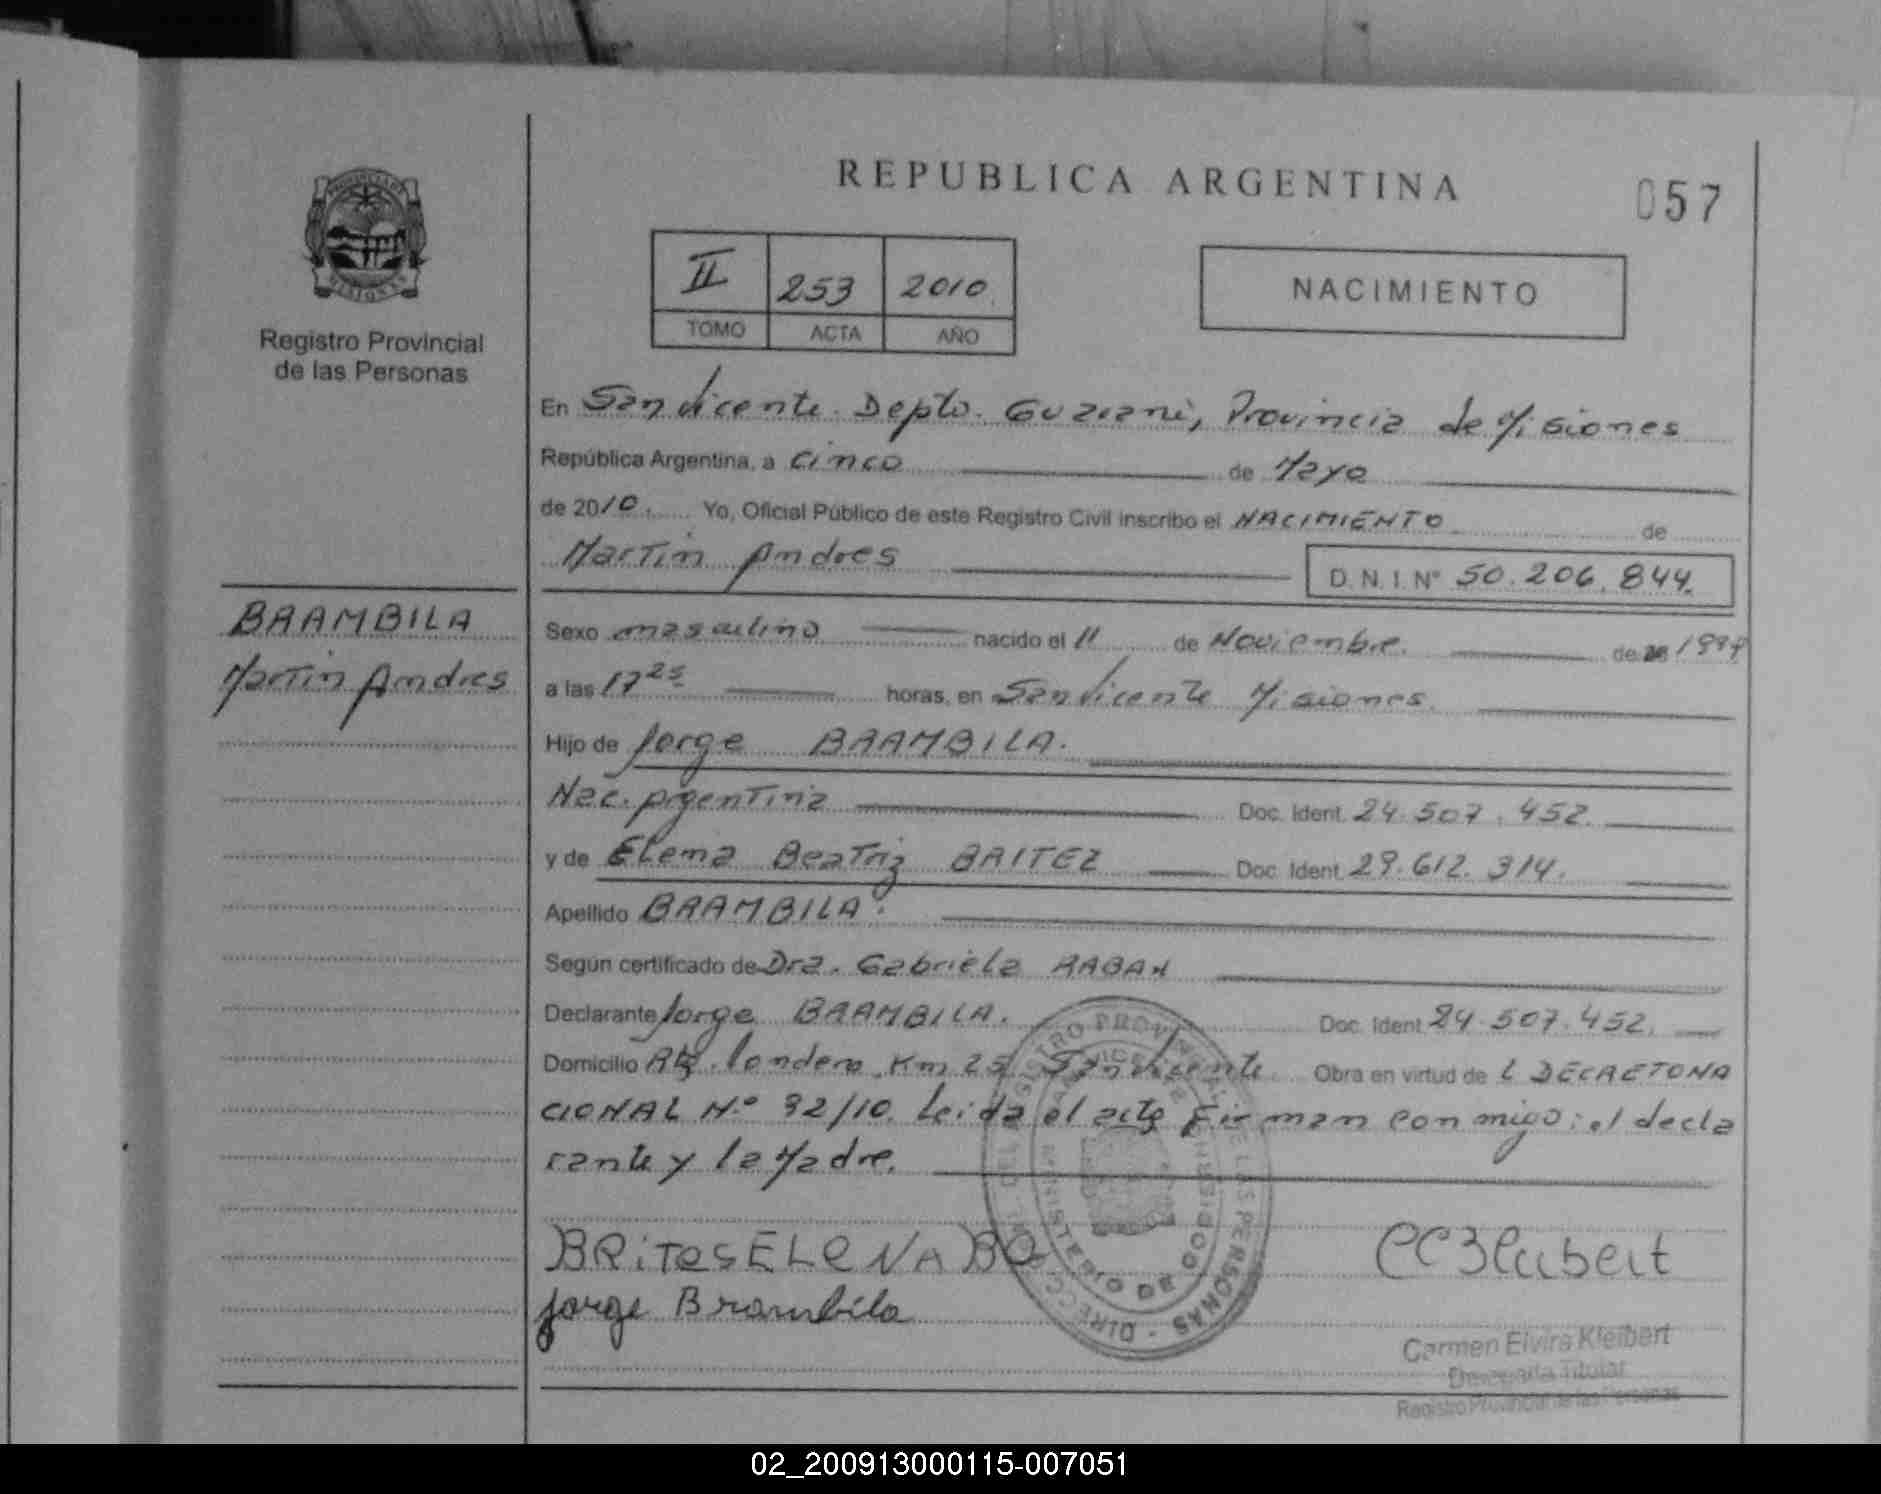 REPUBLICA ARGENTINA
057
PROVINCIA DE MISIONES
Registro Provincial
de las Personas
II 253 2010
TOMO ACTA AÑO
NACIMIENTO
En San Vicente. Depto. Guarani, Provincia de Misiones
República Argentina, a cinco de Mayo
de 2010. Yo, Oficial Público de este Registro Civil inscribo el NACIMIENTO de
Martin Andres D. N. I. N° 50.206.844.
BRAMBILA
Martin Andres
Sexo masculino nacido el 11 de Noviembre. de
a las 17 25 horas, en San Vicente Misiones.
Hijo de Jorge BRAMBILA.
Nac. Argentina Doc. Ident. 24.507.452.
y de Elena Beatriz BRITEZ Doc. Ident. 29.612.314.
Apellido BRAMBILA.
Según certificado de Dra. Gabriela
Declarante Jorge BRAMBILA. Doc. Ident. 24.507.452.
Domicilio Km 25 San Vicente. Obra en virtud de L DECRETO NA
CIONAL N.° 92/10. Leida el acta Firman conmigo: el decla
rante y la Madre.
BRiTesELeNA
Jorge Brambila
DIRECC. GRAL. DEL REGISTRO PROVINCIAL DE LAS PERSONAS
SAN VICENTE
MINISTERIO DE GOBIERNO
Carmen Elvira Kleibert
Delegada Titular
Registro Provincial de las Personas
02_200913000115-007051